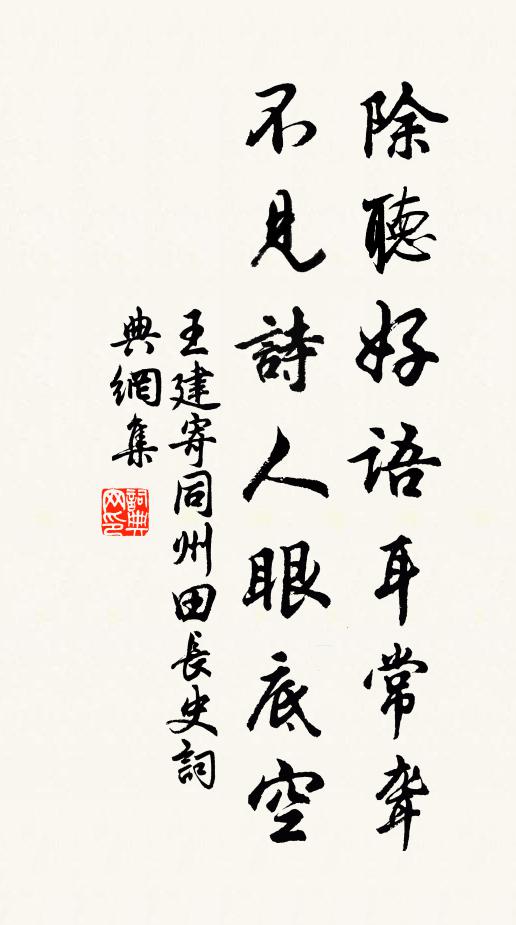 除聽好語耳常聾
不見詩人眼底空
王建寄同州田長史詞
典網集
詞典
网印